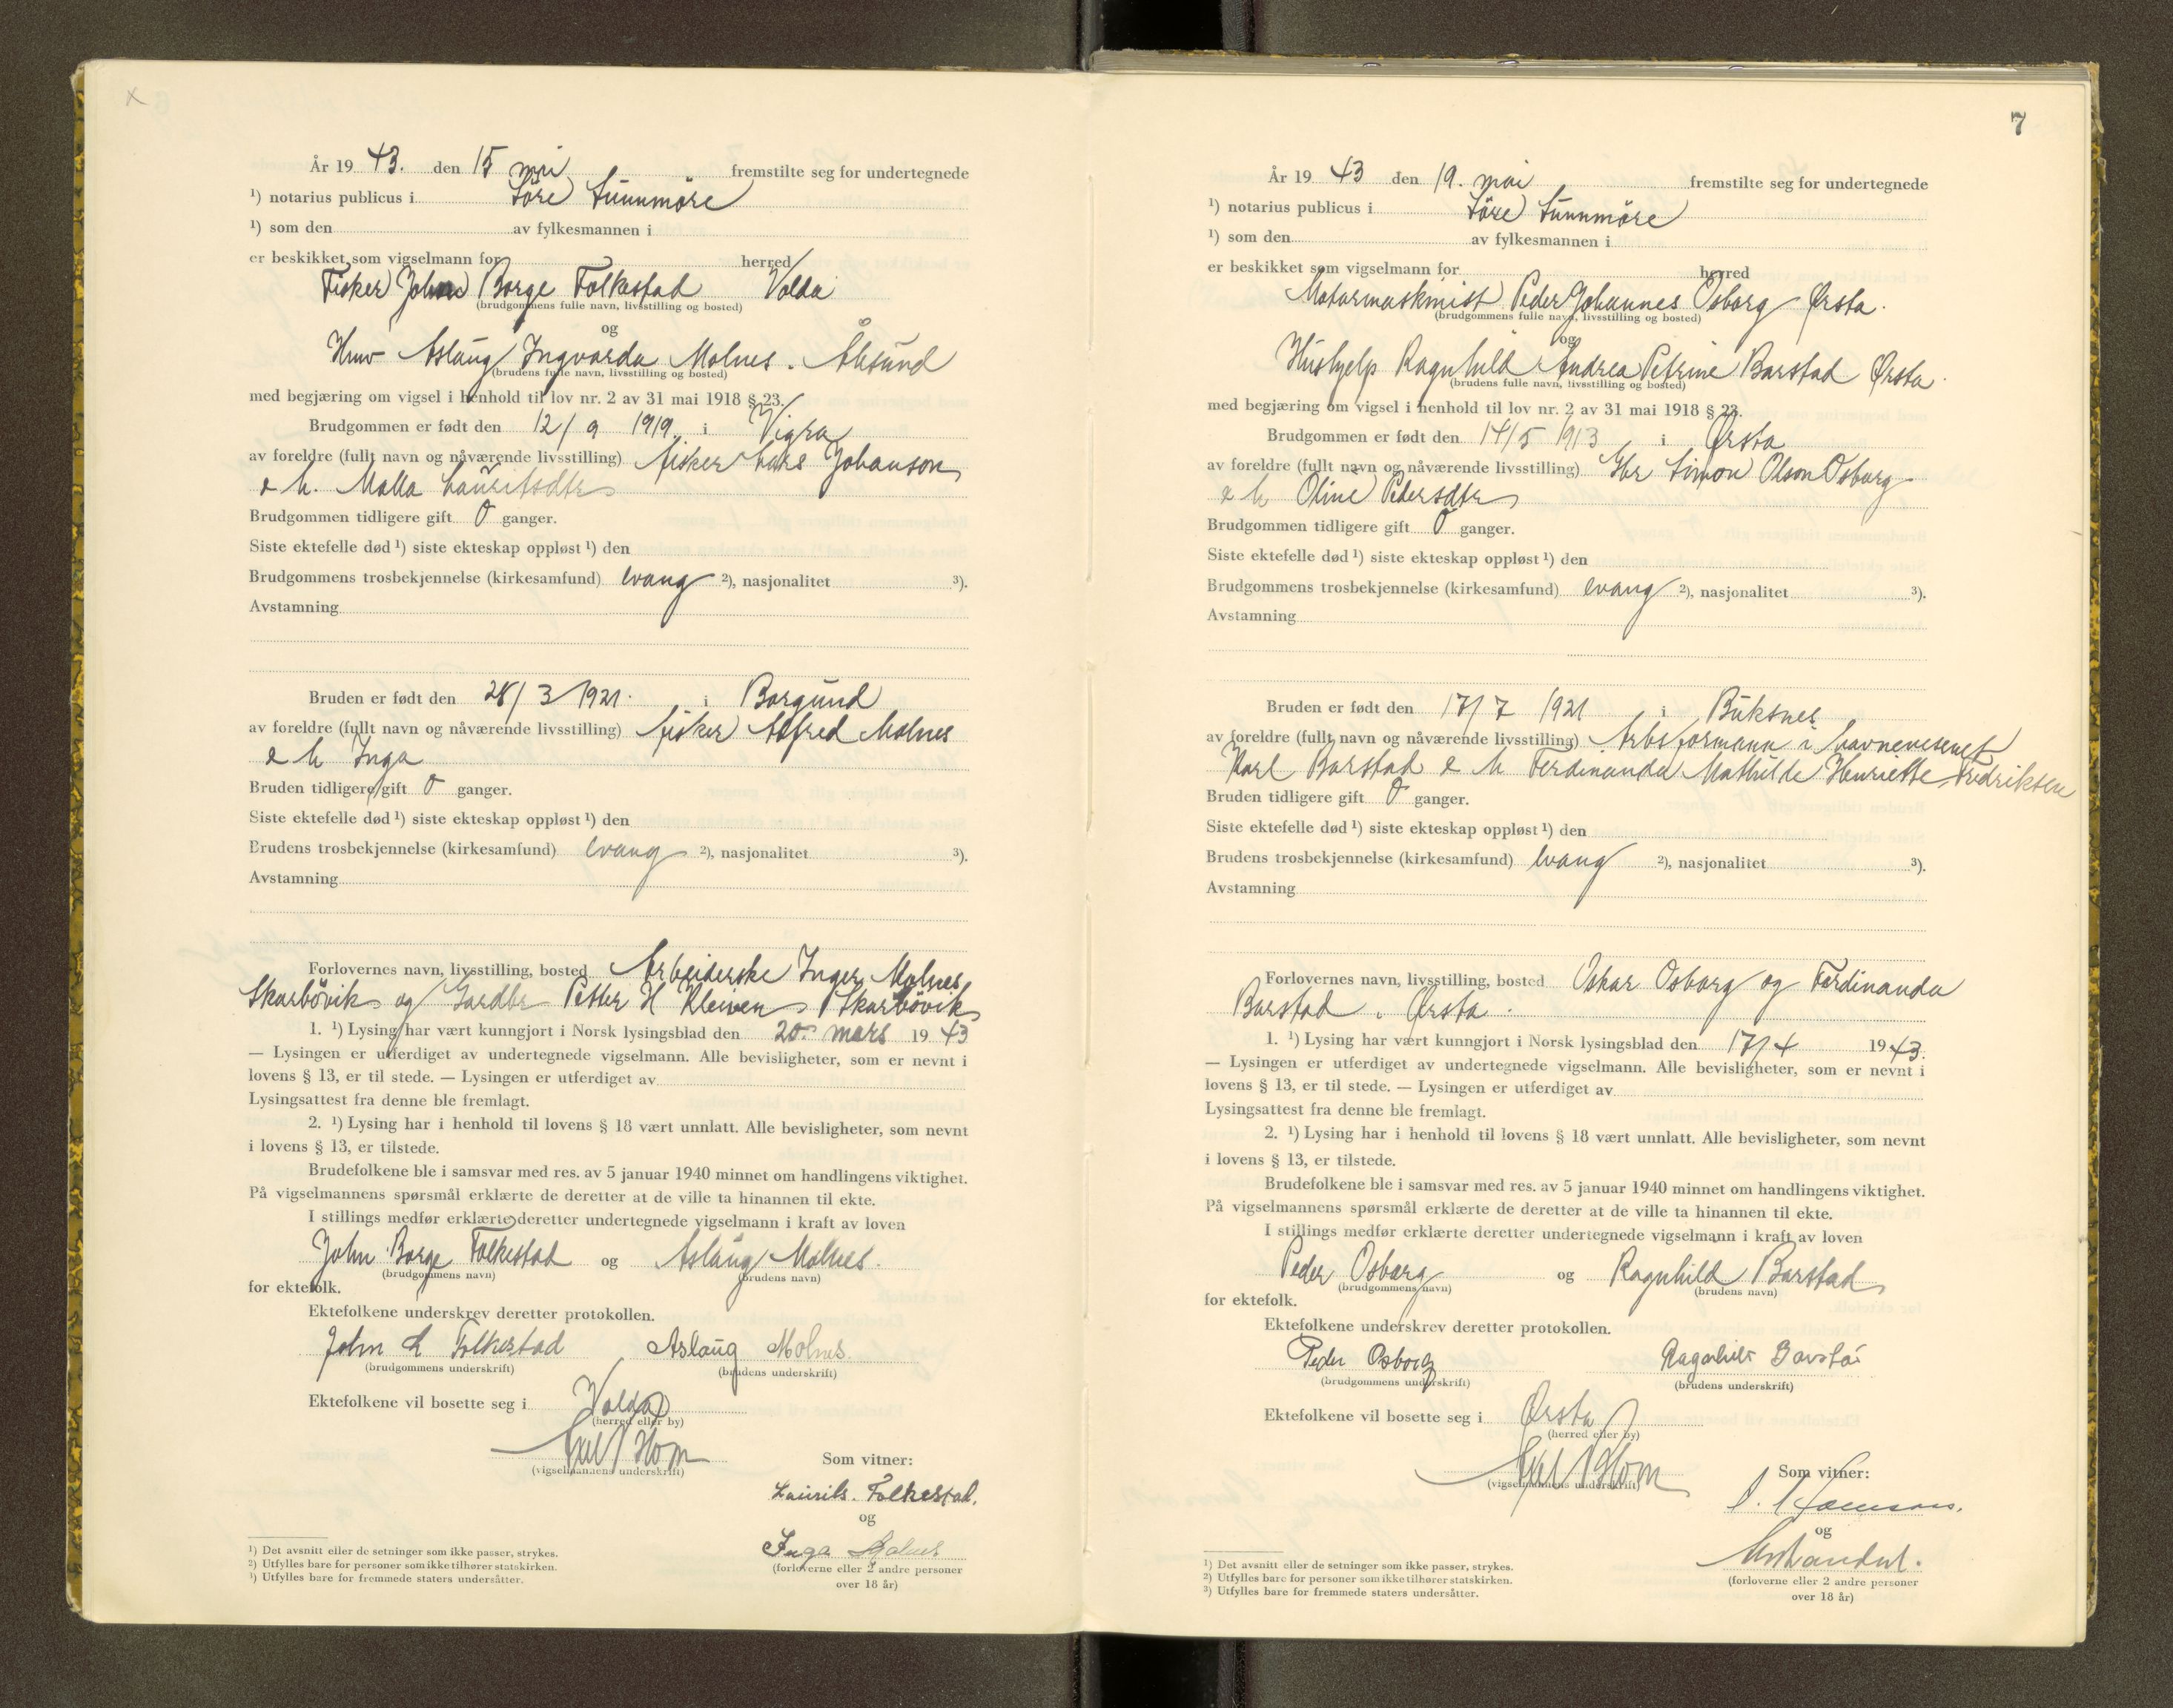 År 19 43. den 15 mai fremstilte seg for undertegnede
¹) notarius publicus i Söre Sunnmöre
¹) som den av fylkesmannen i
er beskikket som vigselmann for herred
Fisker John Borge Folkestad Volda
(brudgommens fulle navn, livsstilling og bosted)
og
Aslaug Ingvarda Molnes. Ålesund
(brudens fulle navn, livsstilling og bosted)
med begjæring om vigsel i henhold til lov nr. 2 av 31 mai 1918 § 23.
Brudgommen er født den 12/9 1919. i Vigra
av foreldre (fullt navn og nåværende livsstilling) fisker Lars Johanson
e h. Malla Lauritsdtr
Brudgommen tidligere gift 0 ganger.
Siste ektefelle død ¹) siste ekteskap oppløst ¹) den
Brudgommens trosbekjennelse (kirkesamfund) evang ²), nasjonalitet ³).
Avstamning
Bruden er født den 28/3 1921. i Borgund
av foreldre (fullt navn og nåværende livsstilling) fisker Alfred Molnes
e h Inga
Bruden tidligere gift 0 ganger.
Siste ektefelle død ¹) siste ekteskap oppløst ¹) den
Brudens trosbekjennelse (kirkesamfund) evang ²), nasjonalitet ³).
Avstamning
Forlovernes navn, livsstilling, bosted Arbeiderske Inger Molnes
Skarbövik og Gardbr Petter H Kleiven Skarbövik
1. ¹) Lysing har vært kunngjort i Norsk lysingsblad den 20. mars 19 43
— Lysingen er utferdiget av undertegnede vigselmann. Alle bevisligheter, som er nevnt i
lovens § 13, er til stede. — Lysingen er utferdiget av
Lysingsattest fra denne ble fremlagt.
2. ¹) Lysing har i henhold til lovens § 18 vært unnlatt. Alle bevisligheter, som nevnt
i lovens § 13, er tilstede.
Brudefolkene ble i samsvar med res. av 5 januar 1940 minnet om handlingens viktighet.
På vigselmannens spørsmål erklærte de deretter at de ville ta hinannen til ekte.
I stillings medfør erklærte deretter undertegnede vigselmann i kraft av loven
John Borge Folkestad og Aslaug Molnes.
(brudgommens navn) (brudens navn)
for ektefolk.
Ektefolkene underskrev deretter protokollen.
John L Folkestad Aslaug Molnes
(brudgommens underskrift) (brudens underskrift)
Ektefolkene vil bosette seg i Volda
(herred eller by)
(vigselmannens underskrift)
Som vitner:
Laurits. Folkestad.
og
Inga Molnes
(forloverne eller 2 andre personer
over 18 år)
¹) Det avsnitt eller de setninger som ikke passer, strykes.
²) Utfylles bare for personer som ikke tilhører statskirken.
³) Utfylles bare for fremmede staters undersåtter.
7
År 19 43 den 19. mai fremstilte seg for undertegnede
¹) notarius publicus i Söre Sunnmöre
¹) som den av fylkesmannen i
er beskikket som vigselmann for herred
Motormaskinist Peder Johannes Osborg Ørsta.
(brudgommens fulle navn, livsstilling og bosted)
og
Hushjelp Ragnhild Andrea Petrine Barstad Ørsta.
(brudens fulle navn, livsstilling og bosted)
med begjæring om vigsel i henhold til lov nr. 2 av 31 mai 1918 § 23.
Brudgommen er født den 14/5 1913 i Ørsta
av foreldre (fullt navn og nåværende livsstilling) Gbr Simon Olson Osborg
e h Oline Pedersdtr
Brudgommen tidligere gift 0 ganger.
Siste ektefelle død ¹) siste ekteskap oppløst ¹) den
Brudgommens trosbekjennelse (kirkesamfund) evang ²), nasjonalitet ³).
Avstamning
Bruden er født den 17/7 1921 i Buksnes
av foreldre (fullt navn og nåværende livsstilling) Arbsformann i havnevesenet
Karl Barstad e h Ferdinanda Mathilde Henriette Fredriksen
Bruden tidligere gift 0 ganger.
Siste ektefelle død ¹) siste ekteskap oppløst ¹) den
Brudens trosbekjennelse (kirkesamfund) evang ²), nasjonalitet ³).
Avstamning
Forlovernes navn, livsstilling, bosted Oskar Osborg og Ferdinanda
Barstad, Ørsta.
1. ¹) Lysing har vært kunngjort i Norsk lysingsblad den 17/4 19 43.
— Lysingen er utferdiget av undertegnede vigselmann. Alle bevisligheter, som er nevnt i
lovens § 13, er til stede. — Lysingen er utferdiget av
Lysingsattest fra denne ble fremlagt.
2. ¹) Lysing har i henhold til lovens § 18 vært unnlatt. Alle bevisligheter, som nevnt
i lovens § 13, er tilstede.
Brudefolkene ble i samsvar med res. av 5 januar 1940 minnet om handlingens viktighet.
På vigselmannens spørsmål erklærte de deretter at de ville ta hinannen til ekte.
I stillings medfør erklærte deretter undertegnede vigselmann i kraft av loven
Peder Osborg og Ragnhild Barstad
(brudgommens navn) (brudens navn)
for ektefolk.
Ektefolkene underskrev deretter protokollen.
Peder Osborg Ragnhild Barstad
(brudgommens underskrift) (brudens underskrift)
Ektefolkene vil bosette seg i Ørsta
(herred eller by)
(vigselmannens underskrift)
Som vitner:
og
(forloverne eller 2 andre personer
over 18 år)
¹) Det avsnitt eller de setninger som ikke passer, strykes.
²) Utfylles bare for personer som ikke tilhører statskirken.
³) Utfylles bare for fremmede staters undersåtter.